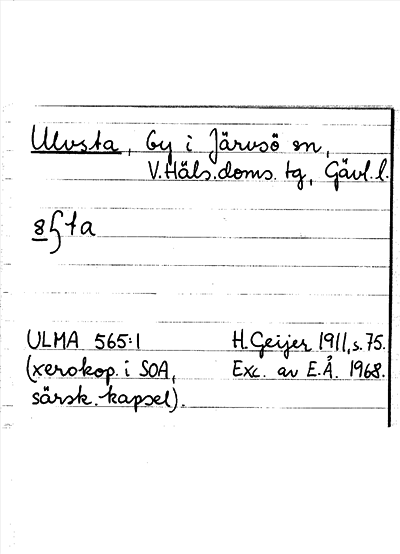 Ulvsta, by i Järvsö sn,
V. Häls. doms. tg, Gävl. l.
ULMA 565:1 H. Geijer 1911, s. 75.
(xerokop. i SOA, Exc. av E.Å. 1968.
särsk. kapsel).